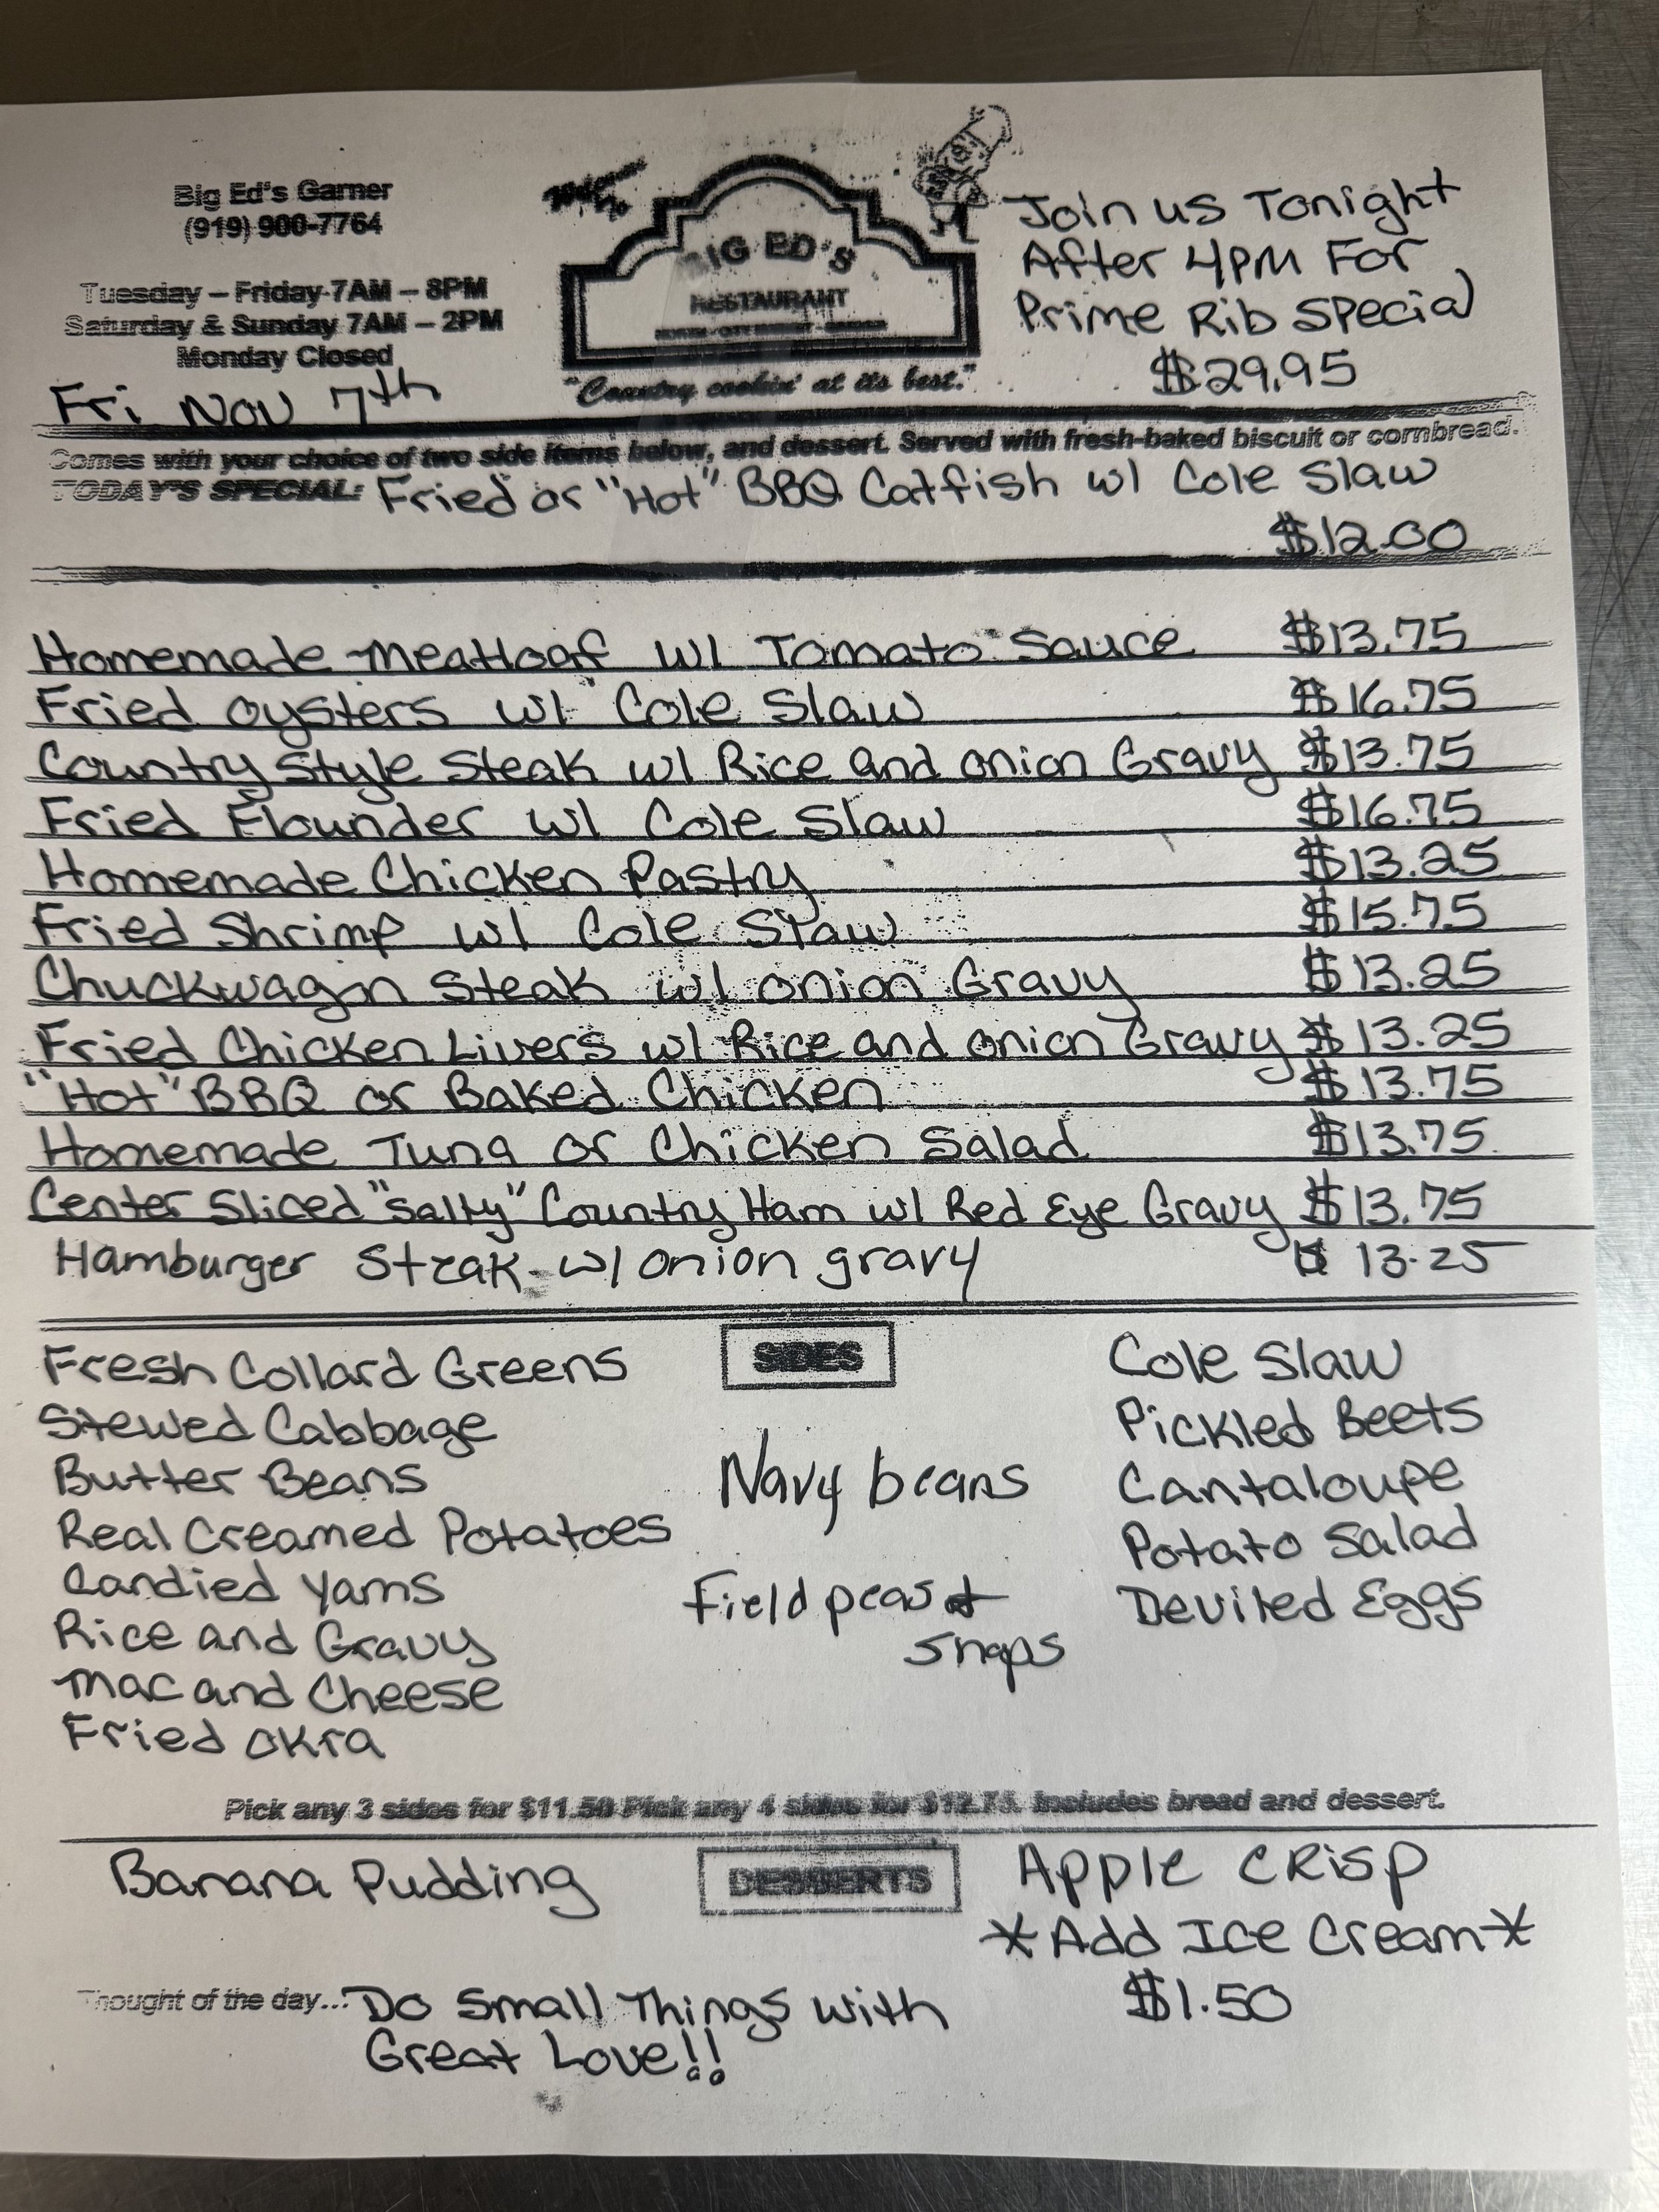 Big Ed's Garner
(919) 900-7764
Tuesday – Friday 7AM – 8PM
Saturday & Sunday 7AM – 2PM
Monday Closed
Fri Nov 7th
BIG ED'S
RESTAURANT
"Country cookin' at its best."
Join us Tonight
After 4PM For
Prime Rib Special
$29.95
Comes with your choice of two side items below, and dessert. Served with fresh-baked biscuit or cornbread.
TODAY'S SPECIAL: Fried or "Hot" BBQ Catfish w/ Cole Slaw
$12.00
Homemade Meatloaf w/ Tomato Sauce $13.75
Fried Oysters w/ Cole Slaw $16.75
Country Style Steak w/ Rice and Onion Gravy $13.75
Fried Flounder w/ Cole Slaw $16.75
Homemade Chicken Pastry $13.25
Fried Shrimp w/ Cole Slaw $15.75
Chuckwagon Steak w/ Onion Gravy $13.25
Fried Chicken Livers w/ Rice and Onion Gravy $13.25
"Hot" BBQ or Baked Chicken $13.75
Homemade Tuna or Chicken Salad $13.75
Center Sliced "Salty" Country Ham w/ Red Eye Gravy $13.75
Hamburger Steak w/ onion gravy $13.25
SIDES
Fresh Collard Greens
Stewed Cabbage
Butter Beans
Real Creamed Potatoes
Candied Yams
Rice and Gravy
Mac and Cheese
Fried Okra
Navy beans
Field peas +
snaps
Cole Slaw
Pickled Beets
Cantaloupe
Potato Salad
Deviled Eggs
Pick any 3 sides for $11.50 Pick any 4 sides for $12.75. Includes bread and dessert.
DESSERTS
Banana Pudding
Apple Crisp
*Add Ice Cream*
$1.50
Thought of the day... Do Small Things with
Great Love!!